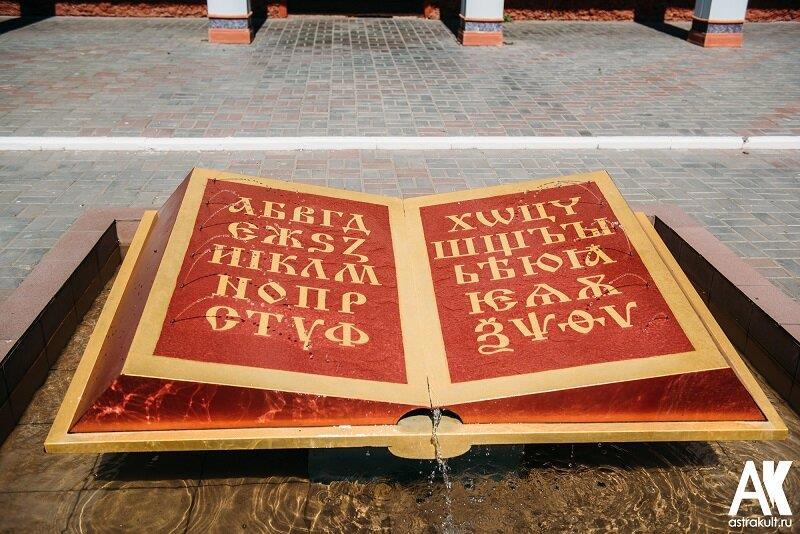 АБВГД
ЄЖЅꙀ
ИІКЛМ
НОПР
СТУФ
ХѠЦЧ
ШЩЪЫ
ЬѢЮꙖ
ѤѦѪ
ѮѰѲѴ
АК
astrakult.ru